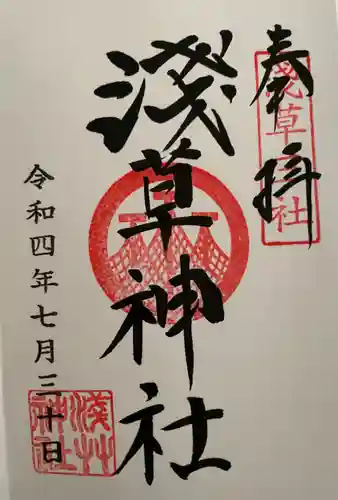 奉拝
淺草神社
令和四年七月三十日
淺草神社
淺草神社